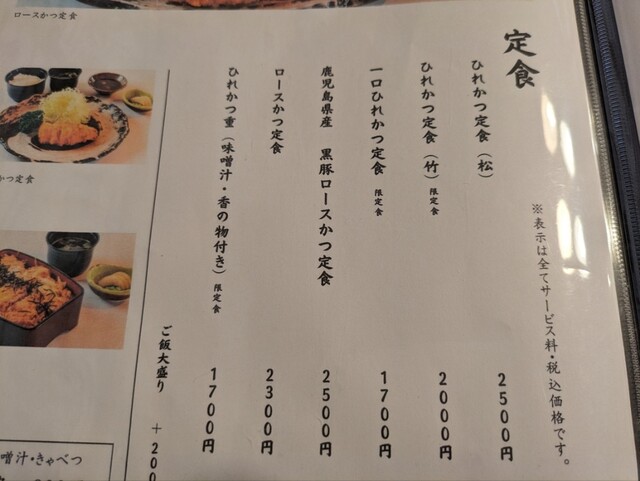 定食
※表示は全てサービス料・税込価格です。
ひれかつ定食（松）
2500円
ひれかつ定食（竹）限定食
2000円
一口ひれかつ定食 限定食
1700円
鹿児島県産 黒豚ロースかつ定食
2500円
ロースかつ定食
2300円
ひれかつ重（味噌汁・香の物付き）限定食
1700円
ご飯大盛り ＋200
ロースかつ定食
かつ定食
噌汁・きゃべつ